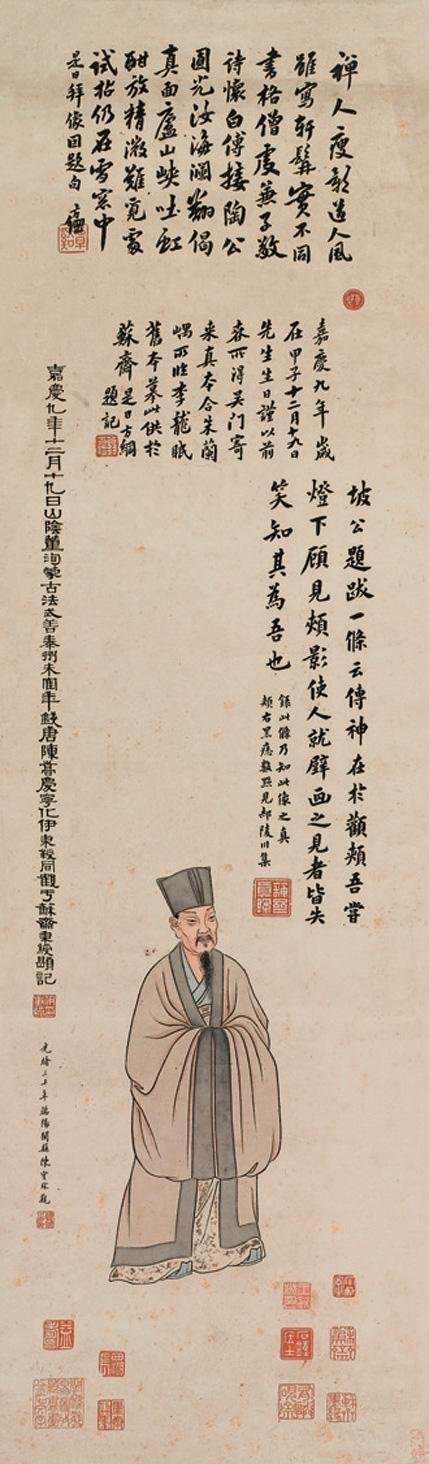 禅人瘦影道人風
雖寫軒髯實不同
書格僧虔兼子敬
詩懷白傅接陶公
圓光汝海瀾翻偈
真面廬山峽吐虹
酣放精微難覓處
試拈仍在雪窓中
是日拜像回題句
嘉慶九年歲
在甲子十二月十九日
先生生日謹以前
春所得吴門寄
来真本合朱蘭
嵎所臨李龍眠
舊本摹此供於
蘇齋 是日方綱
題記
坡公題跋一條云傳神在於顴頰吾嘗
燈下顧見頰影使人就壁画之見者皆失
笑知其為吾也
録此條乃知此像之真
頰右黑痣數點見郝陵川集
嘉慶九年十二月十九日山陰董洵蒙古法式善泰州朱年錢唐陳嵩慶寧化伊秉綬同觀于蘇齋秉綬題記
光緒三十年端陽閩縣陳寶琛觀